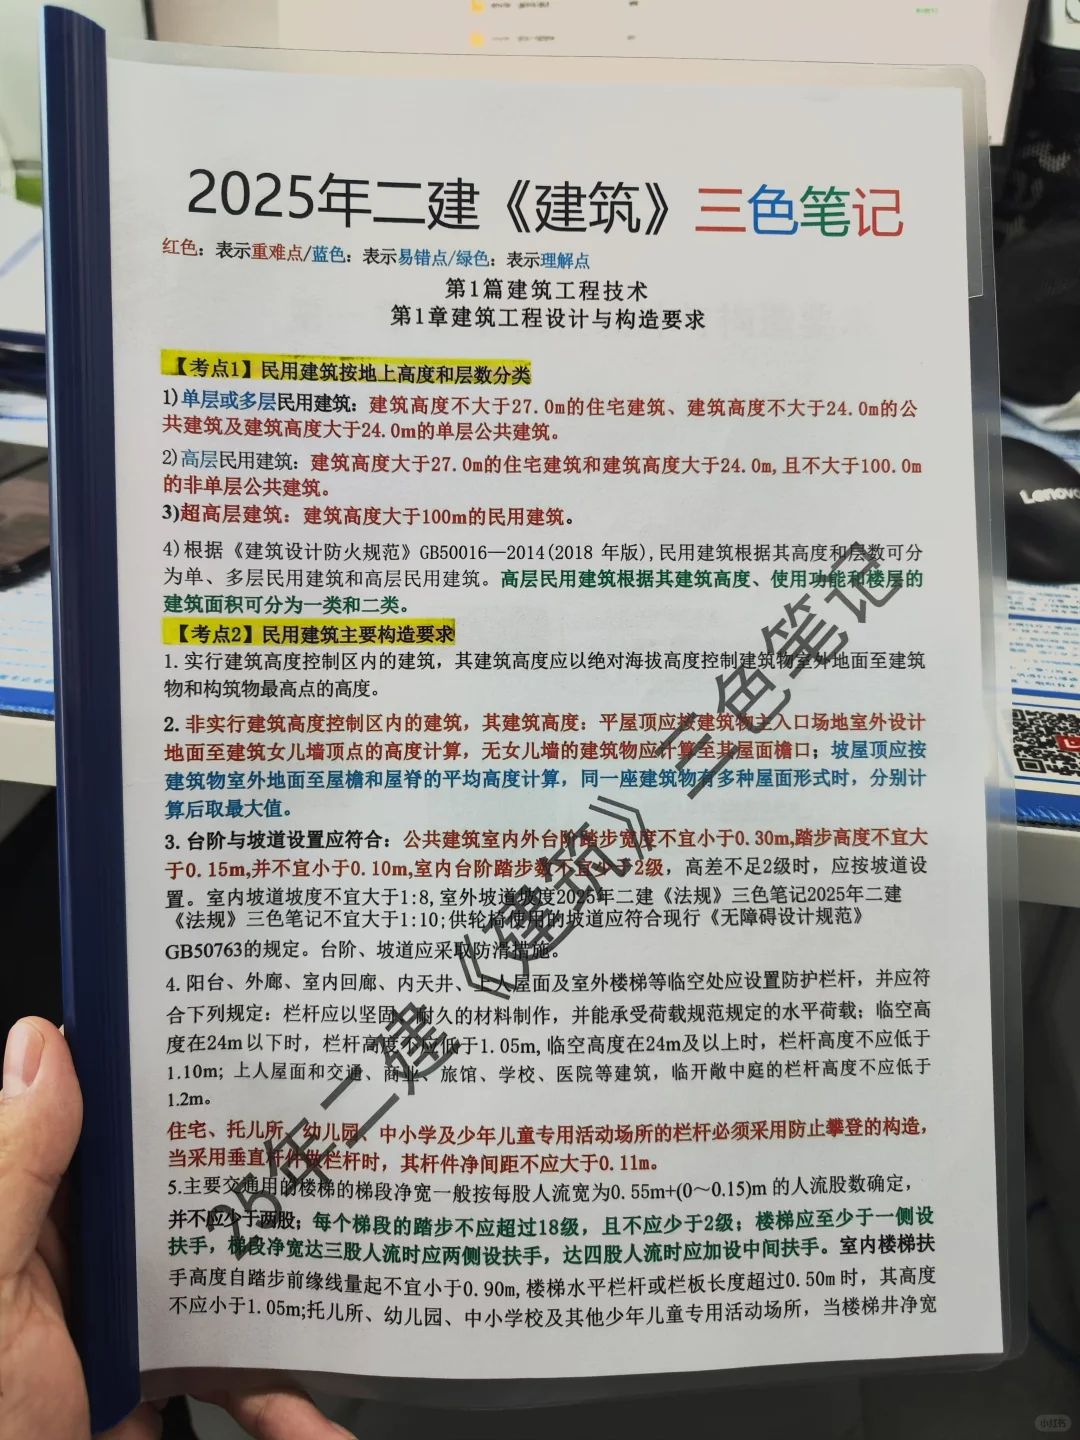 2025年二建《建筑》三色笔记
红色：表示重难点/蓝色：表示易错点/绿色：表示理解点
第1篇建筑工程技术
第1章建筑工程设计与构造要求
【考点1】民用建筑按地上高度和层数分类
1)单层或多层民用建筑：建筑高度不大于27.0m的住宅建筑、建筑高度不大于24.0m的公
共建筑及建筑高度大于24.0m的单层公共建筑。
2)高层民用建筑：建筑高度大于27.0m的住宅建筑和建筑高度大于24.0m,且不大于100.0m
的非单层公共建筑。
3)超高层建筑：建筑高度大于100m的民用建筑。
4)根据《建筑设计防火规范》GB50016—2014(2018 年版),民用建筑根据其高度和层数可分
为单、多层民用建筑和高层民用建筑。高层民用建筑根据其建筑高度、使用功能和楼层的
建筑面积可分为一类和二类。
【考点2】民用建筑主要构造要求
1. 实行建筑高度控制区内的建筑，其建筑高度应以绝对海拔高度控制建筑物室外地面至建筑
物和构筑物最高点的高度。
2. 非实行建筑高度控制区内的建筑，其建筑高度：平屋顶应按建筑物主入口场地室外设计
地面至建筑女儿墙顶点的高度计算，无女儿墙的建筑物应计算至其屋面檐口；坡屋顶应按
建筑物室外地面至屋檐和屋脊的平均高度计算，同一座建筑物有多种屋面形式时，分别计
算后取最大值。
3. 台阶与坡道设置应符合：公共建筑室内外台阶踏步宽度不宜小于0.30m,踏步高度不宜大
于0.15m,并不宜小于0.10m,室内台阶踏步数不宜少于2级，高差不足2级时，应按坡道设
置。室内坡道坡度不宜大于1:8,室外坡道坡度2025年二建《法规》三色笔记2025年二建
《法规》三色笔记不宜大于1:10;供轮椅使用的坡道应符合现行《无障碍设计规范》
GB50763的规定。台阶、坡道应采取防滑措施。
4. 阳台、外廊、室内回廊、内天井、上人屋面及室外楼梯等临空处应设置防护栏杆，并应符
合下列规定：栏杆应以坚固、耐久的材料制作，并能承受荷载规范规定的水平荷载；临空高
度在24m以下时，栏杆高度不应低于1.05m,临空高度在24m及以上时，栏杆高度不应低于
1.10m；上人屋面和交通、商业、旅馆、学校、医院等建筑，临开敞中庭的栏杆高度不应低于
1.2m。
住宅、托儿所、幼儿园、中小学及少年儿童专用活动场所的栏杆必须采用防止攀登的构造，
当采用垂直杆件做栏杆时，其杆件净间距不应大于0.11m。
5.主要交通用的楼梯的梯段净宽一般按每股人流宽为0.55m+(0～0.15)m 的人流股数确定，
并不应少于两股；每个梯段的踏步不应超过18级，且不应少于2级；楼梯应至少于一侧设
扶手，梯段净宽达三股人流时应两侧设扶手，达四股人流时应加设中间扶手。室内楼梯扶
手高度自踏步前缘线量起不宜小于0.90m,楼梯水平栏杆或栏板长度超过0.50m时，其高度
不应小于1.05m;托儿所、幼儿园、中小学校及其他少年儿童专用活动场所，当楼梯井净宽
25年二建《建筑》三色笔记
Lenovo
小红书